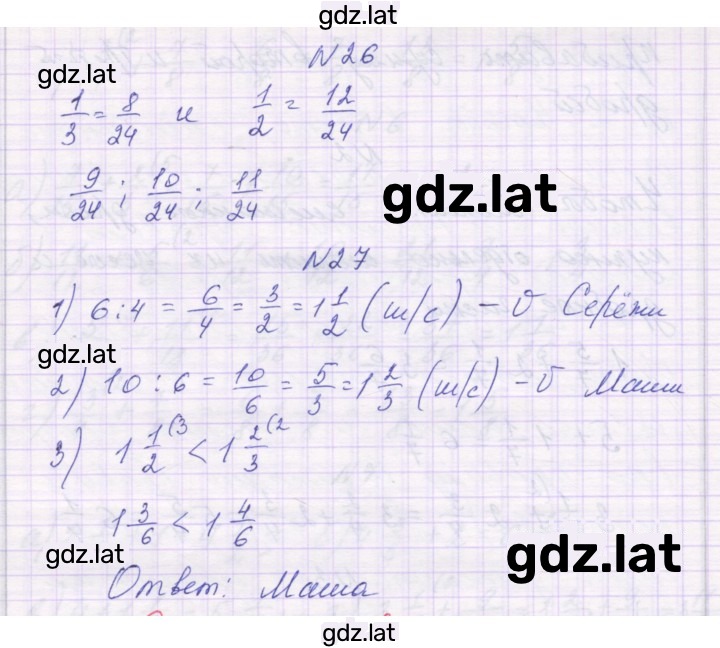 gdz.lat
N26
gdz.lat
1/3 = 8/24 и 1/2 = 12/24
9/24 ; 10/24 ; 11/24
gdz.lat
N27
1) 6:4 = 6/4 = 3/2 = 1 1/2 (м/с) – v Серёжи
gdz.lat
2) 10:6 = 10/6 = 5/3 = 1 2/3 (м/с) – v Маши
3) 1 1/2 (3 < 1 2/3 (2
1 3/6 < 1 4/6
gdz.lat
gdz.lat
Ответ: Маша
gdz.lat